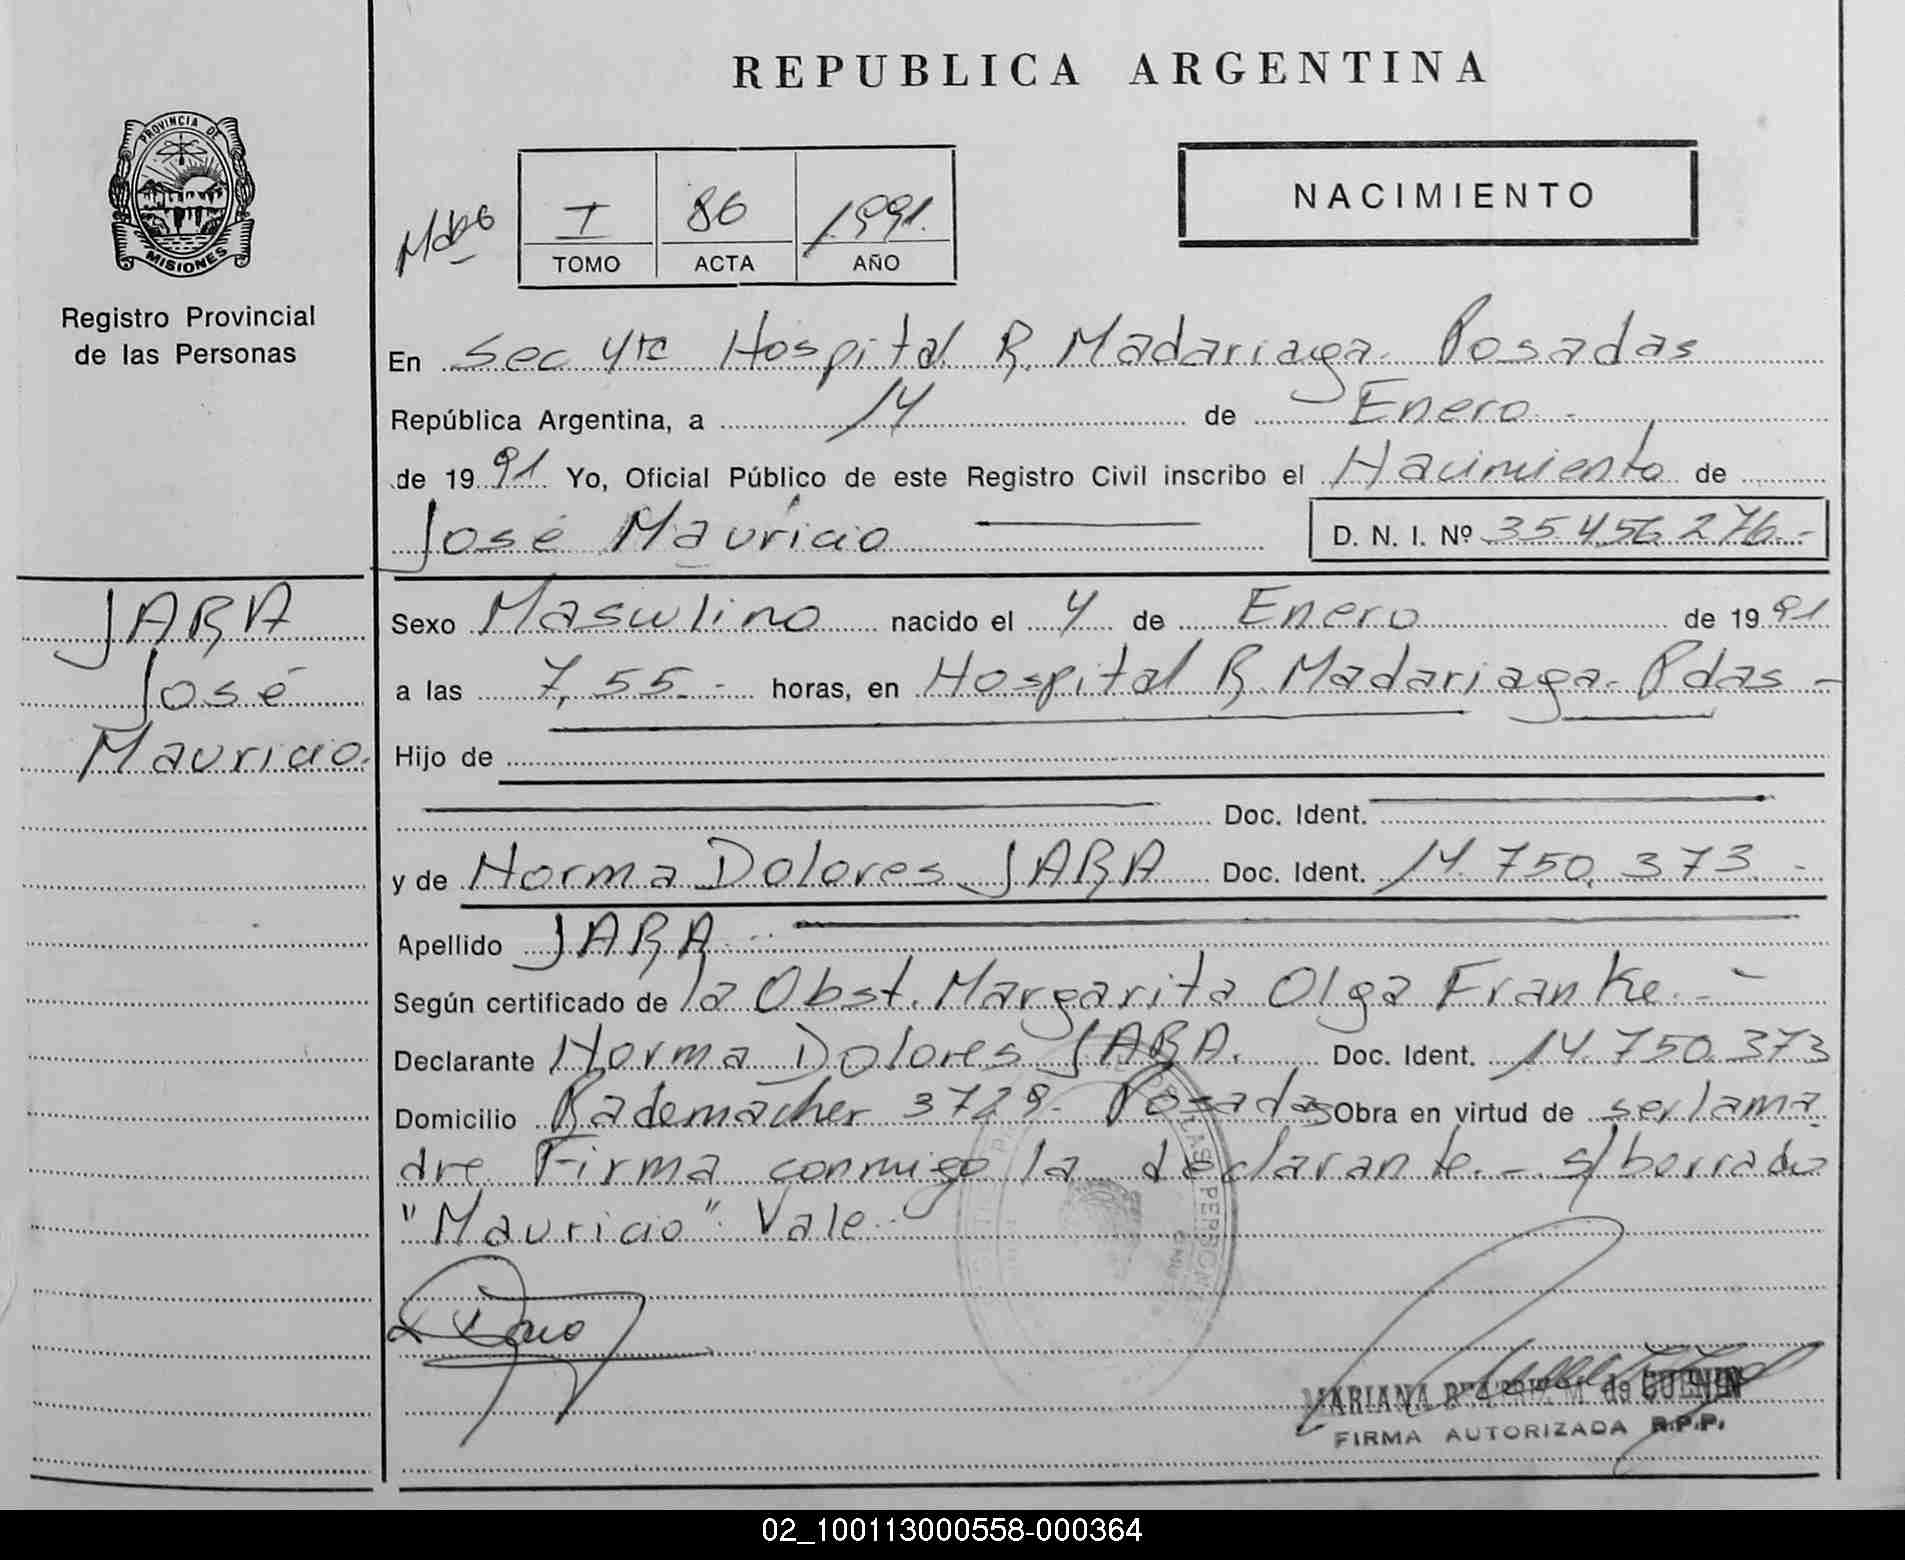 REPUBLICA ARGENTINA
PROVINCIA DE
MISIONES
Registro Provincial
de las Personas
I 86 1991.
TOMO ACTA AÑO
NACIMIENTO
En Sec 4ta Hospital R. Madariaga. Posadas
República Argentina, a 14 de Enero.-
de 1991 Yo, Oficial Público de este Registro Civil inscribo el Nacimiento de
José Mauricio D. N. I. Nº 35.456.276.-
JARA
José
Mauricio.
Sexo Masculino nacido el 4 de Enero de 1991
a las 7,55.- horas, en Hospital R. Madariaga. Pdas-
Hijo de
Doc. Ident.
y de Norma Dolores JARA Doc. Ident. 14.750.373.-
Apellido JARA
Según certificado de la Obst. Margarita Olga Franke.-
Declarante Norma Dolores JARA. Doc. Ident. 14.750.373
Domicilio Rademacher 3729. Posadas Obra en virtud de ser la ma
dre Firma conmigo la declarante.- s/borrado
"Mauricio". Vale.-
DE LAS PERSONAS
MARIANA de GUENIN
FIRMA AUTORIZADA R.P.P.
02_100113000558-000364